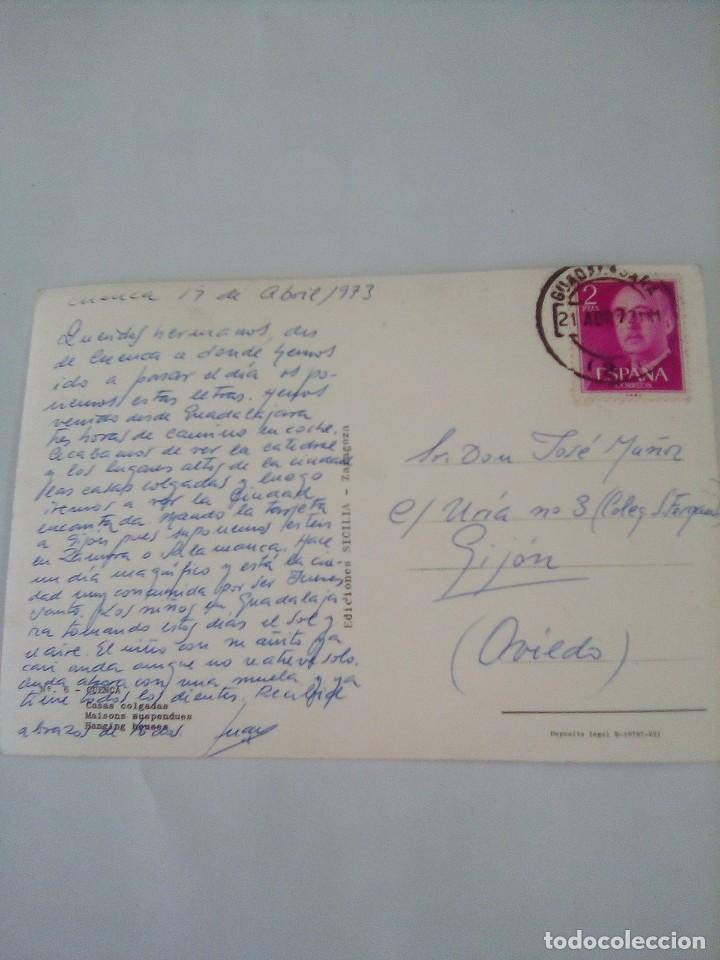 Cuenca 19 de Abril 1973
Queridos hermanos, des
de Cuenca a donde hemos
ido a pasar el día os po-
nemos estas letras. Hemos
venidos desde Guadalajara
tres horas de camino en coche.
Acabamos de ver la catedral
y los lugares altos de la ciudad
las casas colgadas y luego
iremos a ver la Ciudad
encantada. Mando la tarjeta
a Gijón pues suponemos estéis
en Zamora o Salamanca. Hace
un día magnífico y está la ciu-
dad muy concurrida por ser Jueves
Santo. Los niños en Guadalaja-
ra tomando estos días el sol y
el aire. El niño con su añito ya
casi anda aunque no se atreve solo.
anda ahora con una muela y ya
tiene todos los dientes. Recibid
abrazos de todos Juan
Nº. 6 - CUENCA
Casas colgadas
Maisons suspendues
Hanging houses
Ediciones SICILIA - Zaragoza
GUADALAJARA
21 ABR 73
2
PTS
ESPAÑA
CORREOS
Sr. Don José Muñoz
c/ Uría nº 3 (Coleg. S.
Gijón
(Oviedo)
Deposito legal B-
todocoleccion